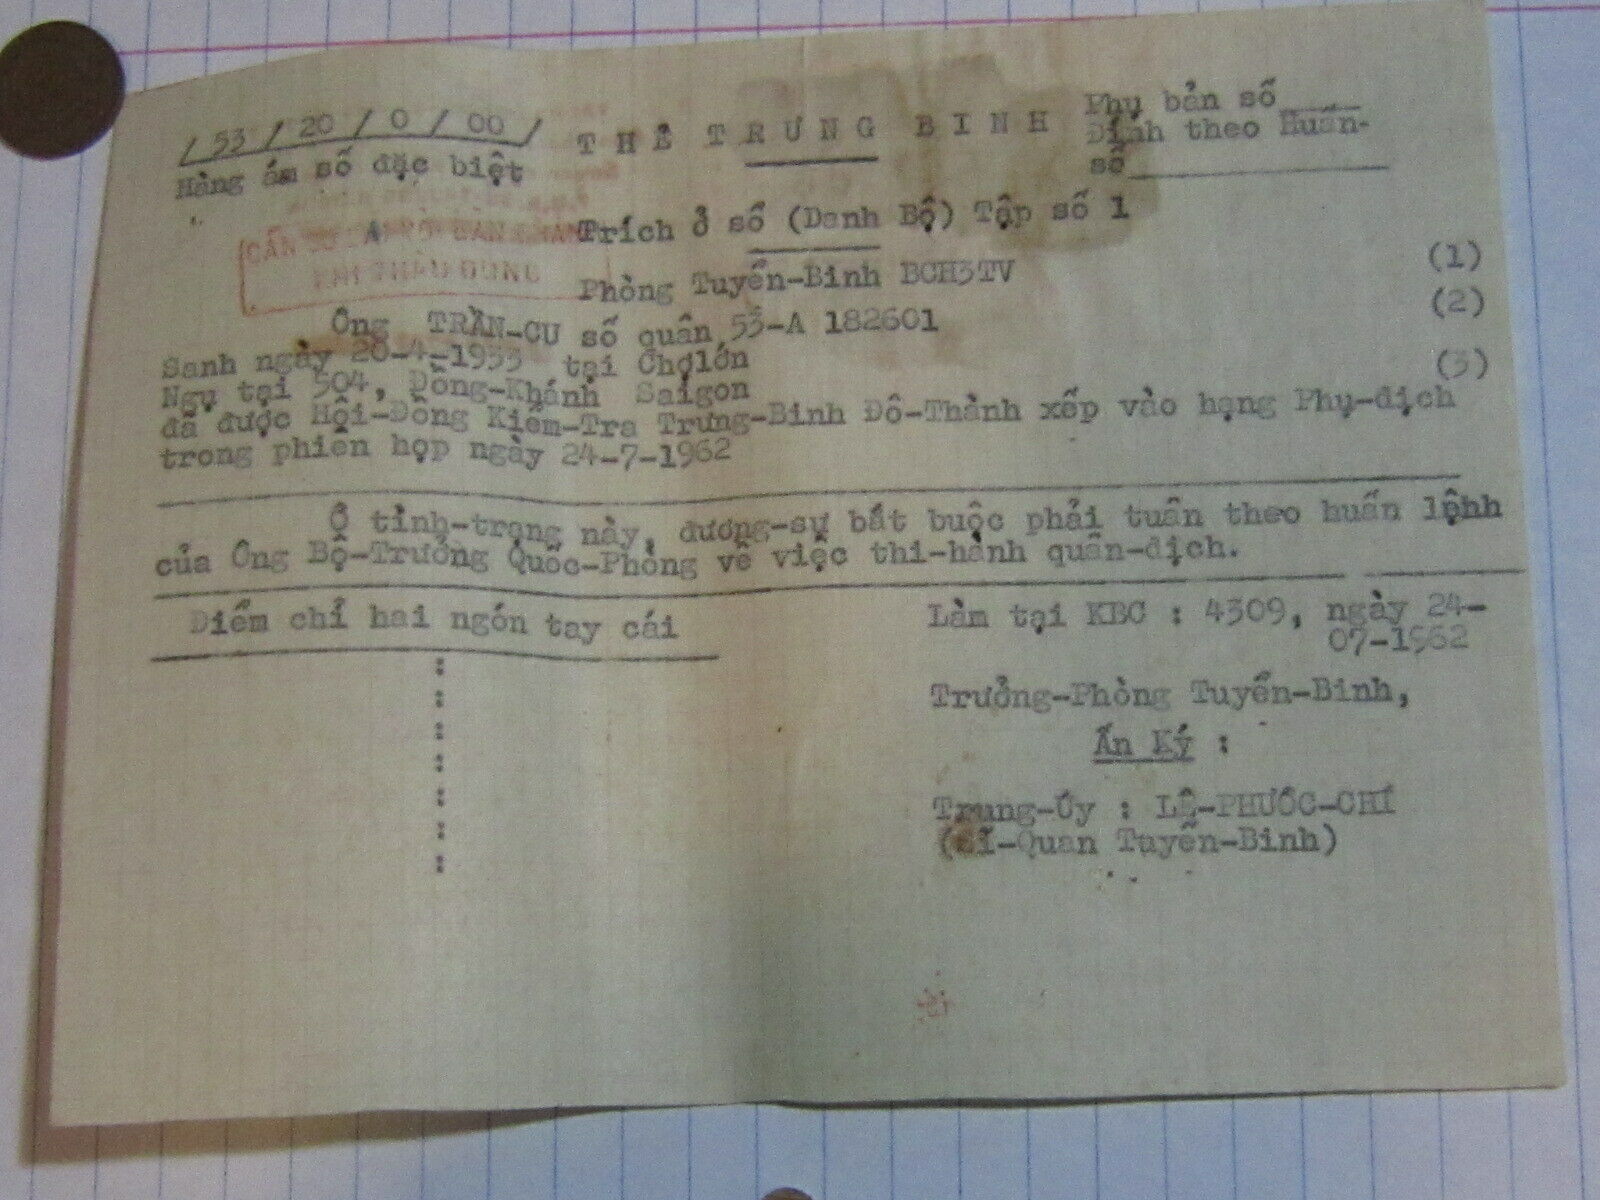 / 53 / 20 / 0 / 00 /
Hàng ám số đặc biệt
THẺ TRƯNG BINH
Phụ bản số____
Đính theo Huấn-
số
Trích ở số (Danh Bộ) Tập số 1
KHI THÂU DÙNG
Phòng Tuyển-Binh BCH3TV (1)
Ông TRẦN-CU số quân 53-A 182601 (2)
Sanh ngày 20-4-1933 tại Chợlớn
Ngụ tại 504, Đồng-Khánh Saigon (3)
đã được Hội-Đồng Kiểm-Tra Trưng-Binh Đô-Thành xếp vào hạng Phụ-dịch
trong phiên họp ngày 24-7-1962
Ở tình-trạng này, đương-sự bắt buộc phải tuân theo huấn lệhh
của Ông Bộ-Trưởng Quốc-Phòng về việc thi-hành quân-dịch.
Điểm chỉ hai ngón tay cái
Làm tại KBC : 4309, ngày 24-
07-1962
Trưởng-Phòng Tuyển-Binh,
Ấn Ký :
Trung-Úy : LÊ-PHƯỚC-CHÍ
(Sĩ-Quan Tuyển-Binh)